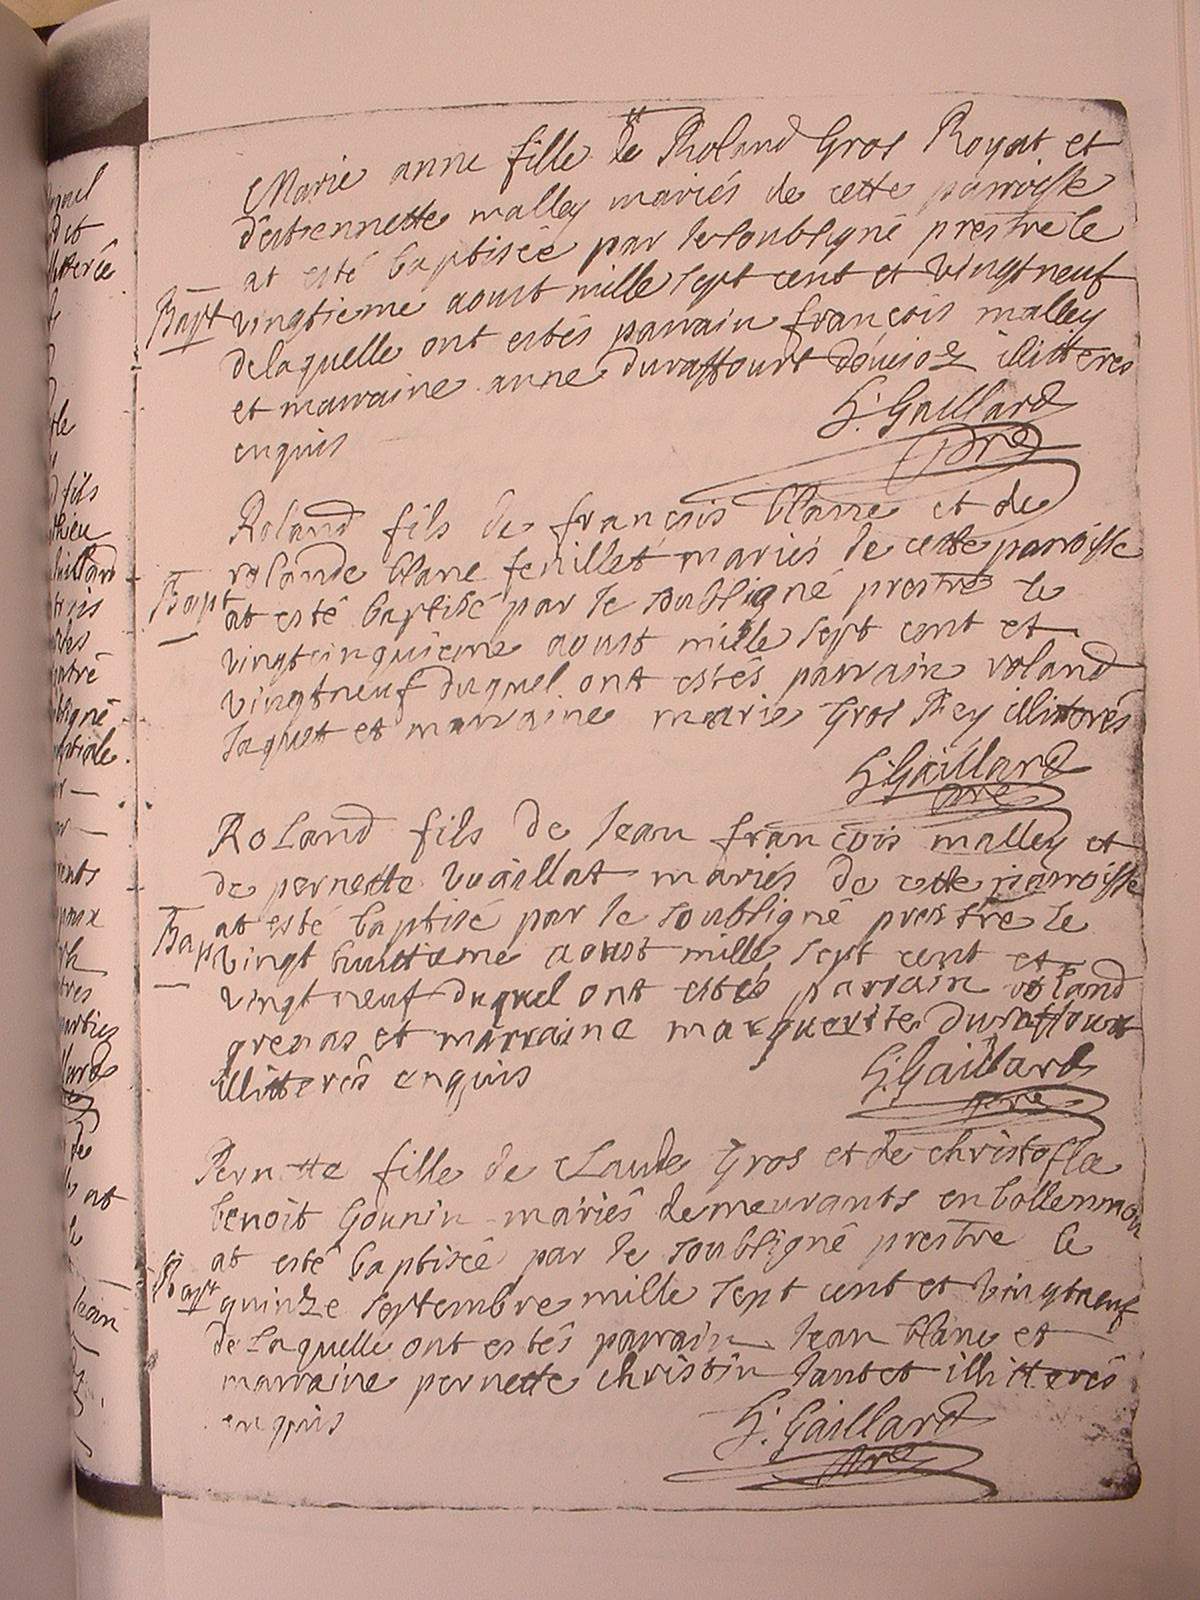 Marie anne fille de Roland Gros Royat et
d'estiennette malley mariés de cette parroisse
at esté baptisée par le soubsigné prestre le
Bapt vingtieme aoust mille sept cent et vingtneuf
delaquelle ont estés parrain françois malley
et marraine anne duraffourt illitteres
enquis
Gaillard
pre
Roland fils de françois blanc et de
rolande blanc feuillet mariés de cette parroisse
Bapt at esté baptisé par le soubsigné prestre le
vingtcinquieme aoust mille sept cent et
vingtneuf duquel ont estés parrain roland
Jaquet et marraine marie Gros Rey illiterés
Gaillard
pre
Roland fils de Jean françois malley et
de pernette vuaillat mariés de cette parroisse
at esté baptisé par le soubsigné prestre le
Bap vingt huictieme aoust mille sept cent et
vingt neuf duquel ont estés parrain roland
grenas et marraine marguerite Duraffourt
illitterés enquis
Gaillard
pre
Pernette fille de Claude Gros et de christofla
benoit Gounin mariés demeurants en
at esté baptisée par le soubsigné prestre le
Bapt quinze septembre mille sept cent et vingtneuf
de laquelle ont estés parrain Jean blanc et
marraine pernette christin Jantet illitterés
enquis
Gaillard
pre